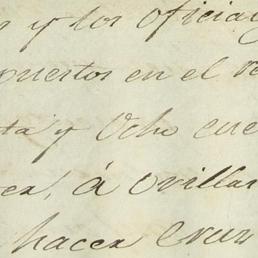 s y los oficia
puertos en el re
ta y Ocho cue
cea, á orillas
hacer cruz